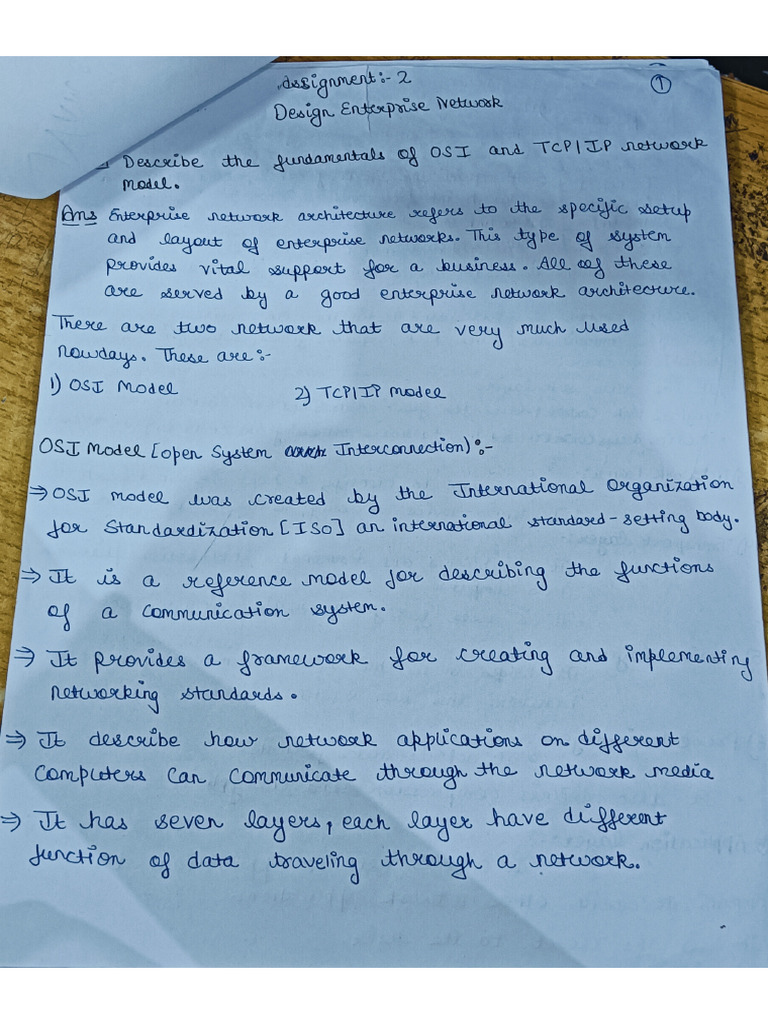 Assignment:- 2
①
Design Enterprise Network
Describe the fundamentals of OSI and TCP/IP network
model.
Ans Enterprise network architecture refers to the specific setup
and layout of enterprise networks. This type of system
provides vital support for a business. All of these
are served by a good enterprise network architecture.
There are two network that are very much used
nowdays. These are:-
1) OSI Model 2) TCP/IP Model
OSI Model [open System Interconnection):-
⇒ OSI model was created by the International Organization
for Standardization [ISO] an international standard-setting body.
⇒ It is a reference model for describing the functions
of a communication system.
⇒ It provides a framework for creating and implementing
networking standards.
⇒ It describe how network applications on different
computers can communicate through the network media
⇒ It has seven layers, each layer have different
function of data traveling through a network.